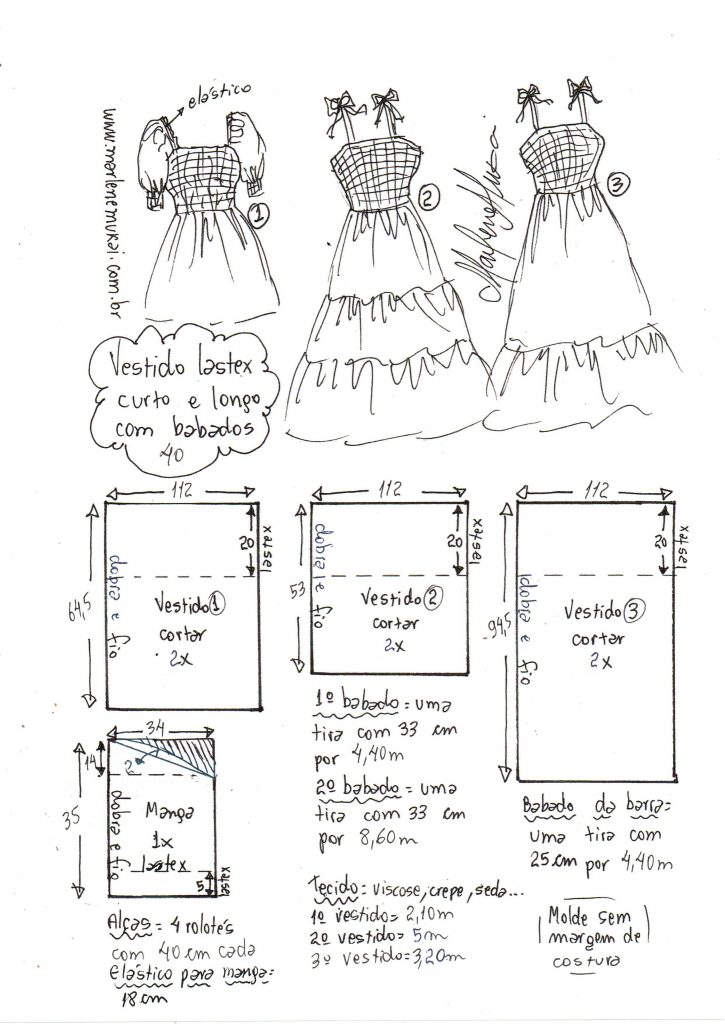 elástico
www.marlenemukai.com.br
1
2
3
Marlene Mukai
Vestido lastex
curto e longo
com babados
40
112
20
lastex
64,5
dobra e fio
Vestido 1
cortar
2x
112
20
lastex
53
dobra e fio
Vestido 2
cortar
2x
112
20
lastex
94,5
dobra e fio
Vestido 3
cortar
2x
34
14
2
35
dobra e fio
Manga
1x
lastex
5
lastex
Alças = 4 rolotês
com 40 cm cada
Elástico para manga=
18 cm
1º babado = uma
tira com 33 cm
por 4,40m
2º babado = uma
tira com 33 cm
por 8,60m
Tecido: viscose, crepe, seda...
1º vestido= 2,10m
2º vestido= 5m
3º vestido=3,20m
Babado da barra=
uma tira com
25cm por 4,40m
Molde sem
margem de
costura